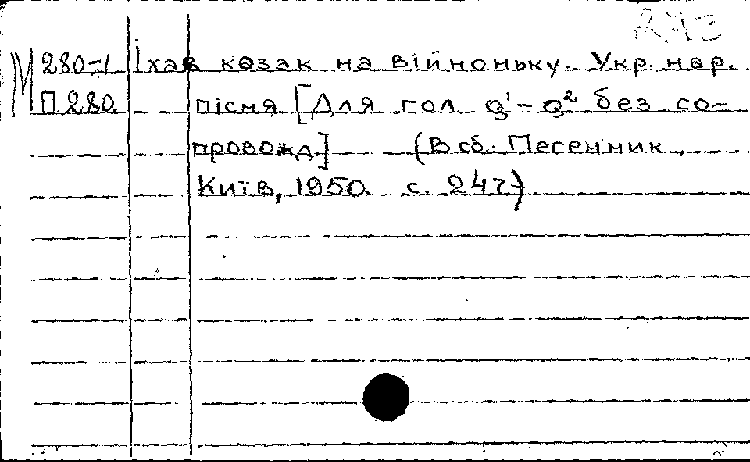 М 280-1 Їхав козак на війноньку. Укр. нар.
П280 пісня [Для гол. g¹-a² без со-
провожд.] (В сб. Песенник,
Київ, 1950. с. 247)